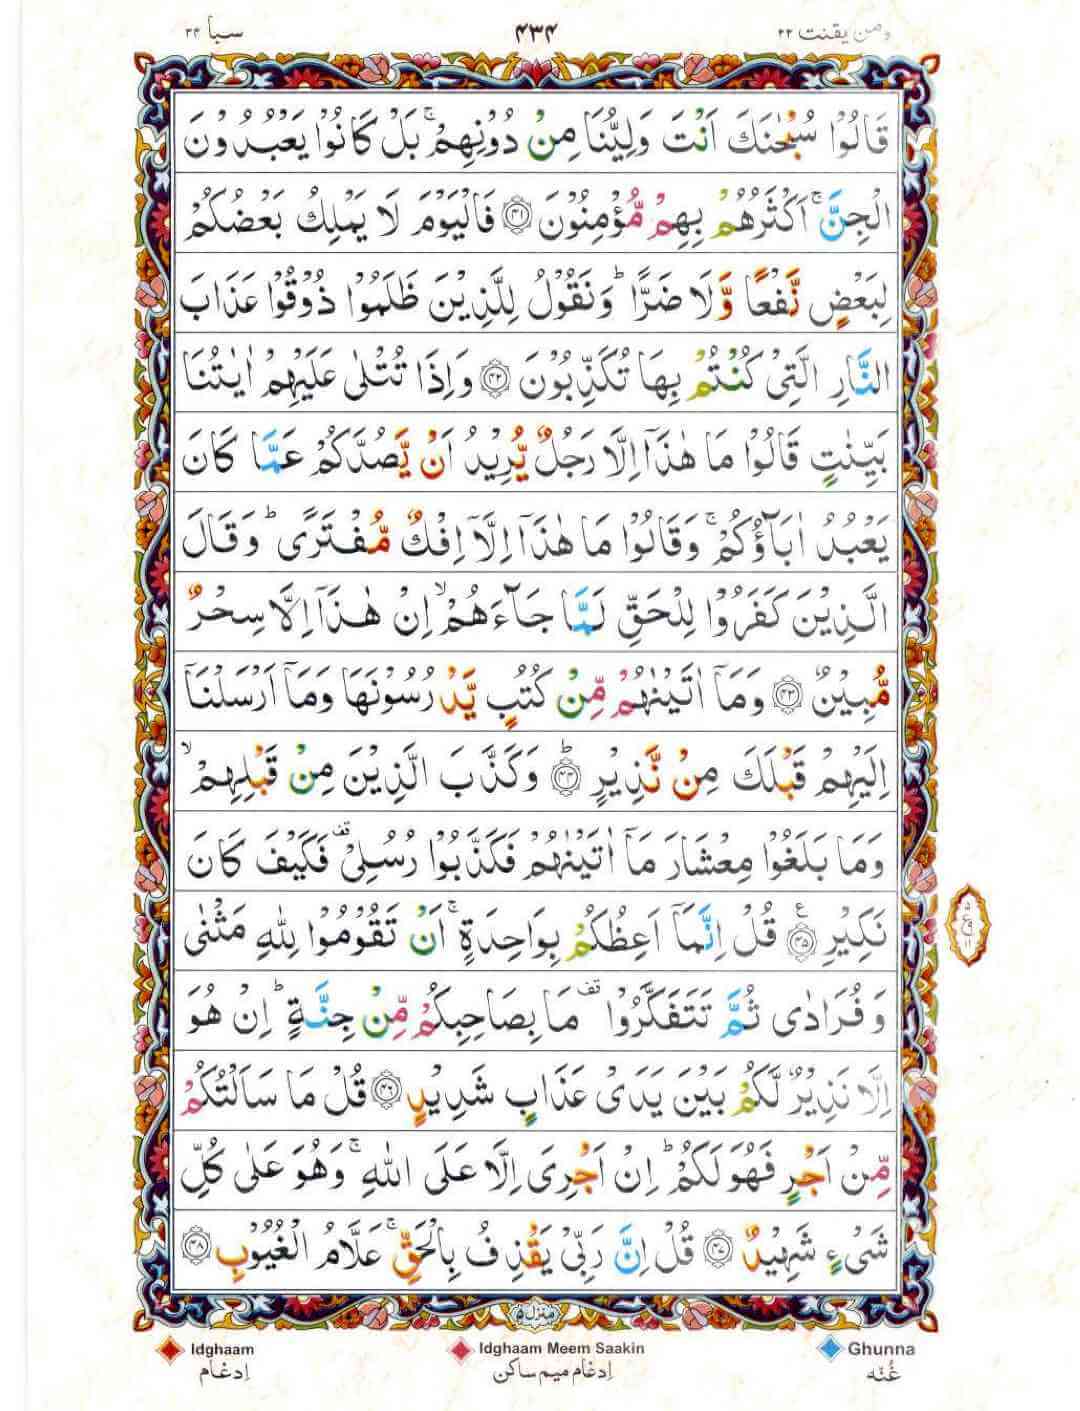 ومن یقنت ۲۲
۴۳۴
سبا ۳۴
قَالُوْا سُبْحٰنَكَ اَنْتَ وَلِيُّنَا مِنْ دُوْنِهِمْ ۚ بَلْ كَانُوْا يَعْبُدُوْنَ
الْجِنَّ ۚ اَكْثَرُهُمْ بِهِمْ مُّؤْمِنُوْنَ ﴿۴۱﴾ فَالْيَوْمَ لَا يَمْلِكُ بَعْضُكُمْ
لِبَعْضٍ نَّفْعًا وَّلَا ضَرًّا ؕ وَنَقُوْلُ لِلَّذِيْنَ ظَلَمُوْا ذُوْقُوْا عَذَابَ
النَّارِ الَّتِىْ كُنْتُمْ بِهَا تُكَذِّبُوْنَ ﴿۴۲﴾ وَاِذَا تُتْلٰى عَلَيْهِمْ اٰيٰتُنَا
بَيِّنٰتٍ قَالُوْا مَا هٰذَاۤ اِلَّا رَجُلٌ يُّرِيْدُ اَنْ يَّصُدَّكُمْ عَمَّا كَانَ
يَعْبُدُ اٰبَآؤُكُمْ ۚ وَقَالُوْا مَا هٰذَاۤ اِلَّاۤ اِفْكٌ مُّفْتَرًى ؕ وَقَالَ
الَّذِيْنَ كَفَرُوْا لِلْحَقِّ لَمَّا جَآءَهُمْ ۙ اِنْ هٰذَاۤ اِلَّا سِحْرٌ
مُّبِيْنٌ ﴿۴۳﴾ وَمَاۤ اٰتَيْنٰهُمْ مِّنْ كُتُبٍ يَّدْرُسُوْنَهَا وَمَاۤ اَرْسَلْنَاۤ
اِلَيْهِمْ قَبْلَكَ مِنْ نَّذِيْرٍ ؕ﴿۴۴﴾ وَكَذَّبَ الَّذِيْنَ مِنْ قَبْلِهِمْ ۙ
وَمَا بَلَغُوْا مِعْشَارَ مَاۤ اٰتَيْنٰهُمْ فَكَذَّبُوْا رُسُلِىْ ۫ فَكَيْفَ كَانَ
نَكِيْرِ ﴿۴۵﴾ قُلْ اِنَّمَاۤ اَعِظُكُمْ بِوَاحِدَةٍ ۚ اَنْ تَقُوْمُوْا لِلّٰهِ مَثْنٰى
وَفُرَادٰى ثُمَّ تَتَفَكَّرُوْا ۫ مَا بِصَاحِبِكُمْ مِّنْ جِنَّةٍ ؕ اِنْ هُوَ
اِلَّا نَذِيْرٌ لَّكُمْ بَيْنَ يَدَىْ عَذَابٍ شَدِيْدٍ ﴿۴۶﴾ قُلْ مَا سَاَلْتُكُمْ
مِّنْ اَجْرٍ فَهُوَ لَكُمْ ؕ اِنْ اَجْرِىَ اِلَّا عَلَى اللّٰهِ ۚ وَهُوَ عَلٰى كُلِّ
شَىْءٍ شَهِيْدٌ ﴿۴۷﴾ قُلْ اِنَّ رَبِّىْ يَقْذِفُ بِالْحَقِّ ۚ عَلَّامُ الْغُيُوْبِ ﴿۴۸﴾
۵
ع
۱۱
منزل ۵
Idghaam
اِدغام
Idghaam Meem Saakin
اِدغام میم ساکن
Ghunna
غُنّہ